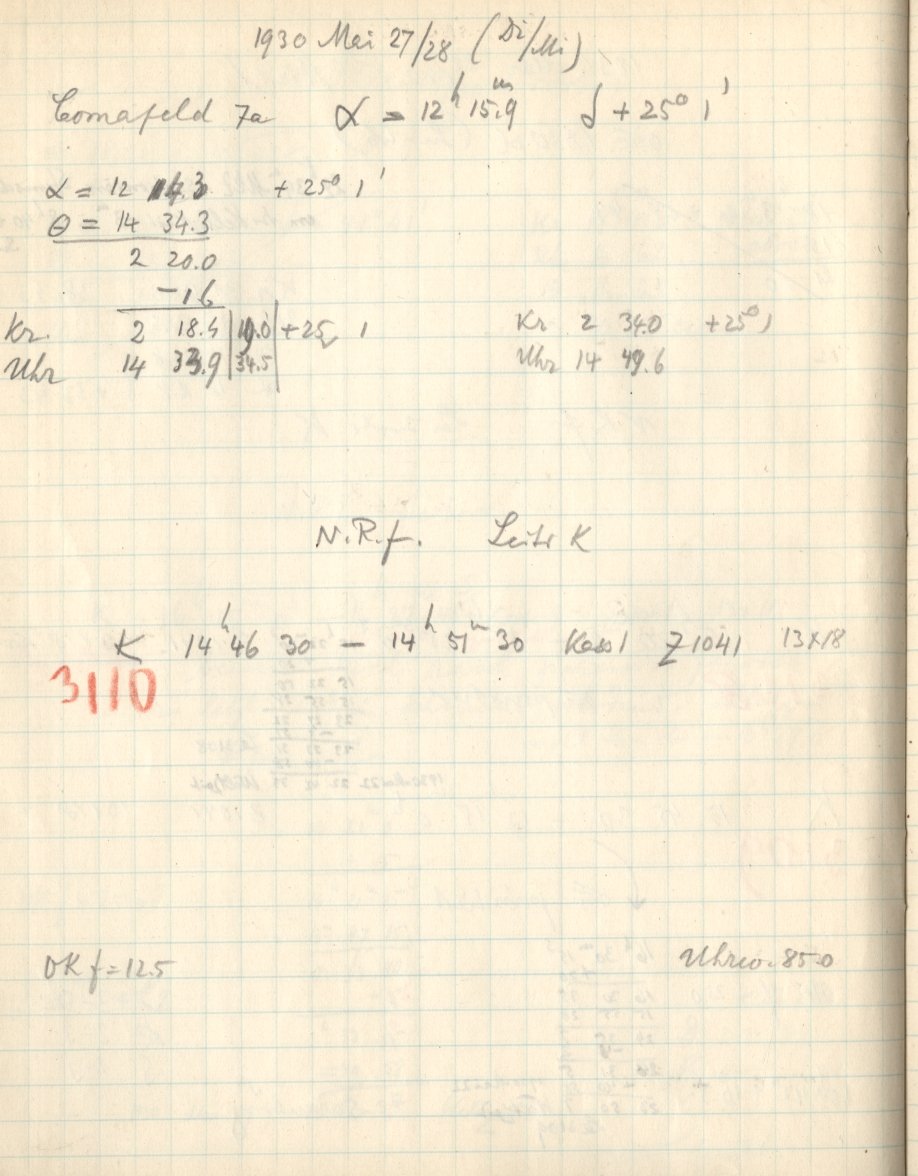 1930 Mai 27/28 (Di/Mi)
Comafeld 7a α = 12ʰ 15.9ᵐ δ + 25° 1'
α = 12 14.3 + 25° 1'
θ = 14 34.3
2 20.0
-1.6
Kr. 2 18.4 | 19.0 | +25 1
Uhr 14 33.9 | 34.5
Kr 2 34.0 +25° 1
Uhr 14 49.6
N.R.f. K
K 14ʰ 46 30 – 14ʰ 51ᵐ 30 Kass 1 Z 1041 13x18
3110
OK f = 12.5
850